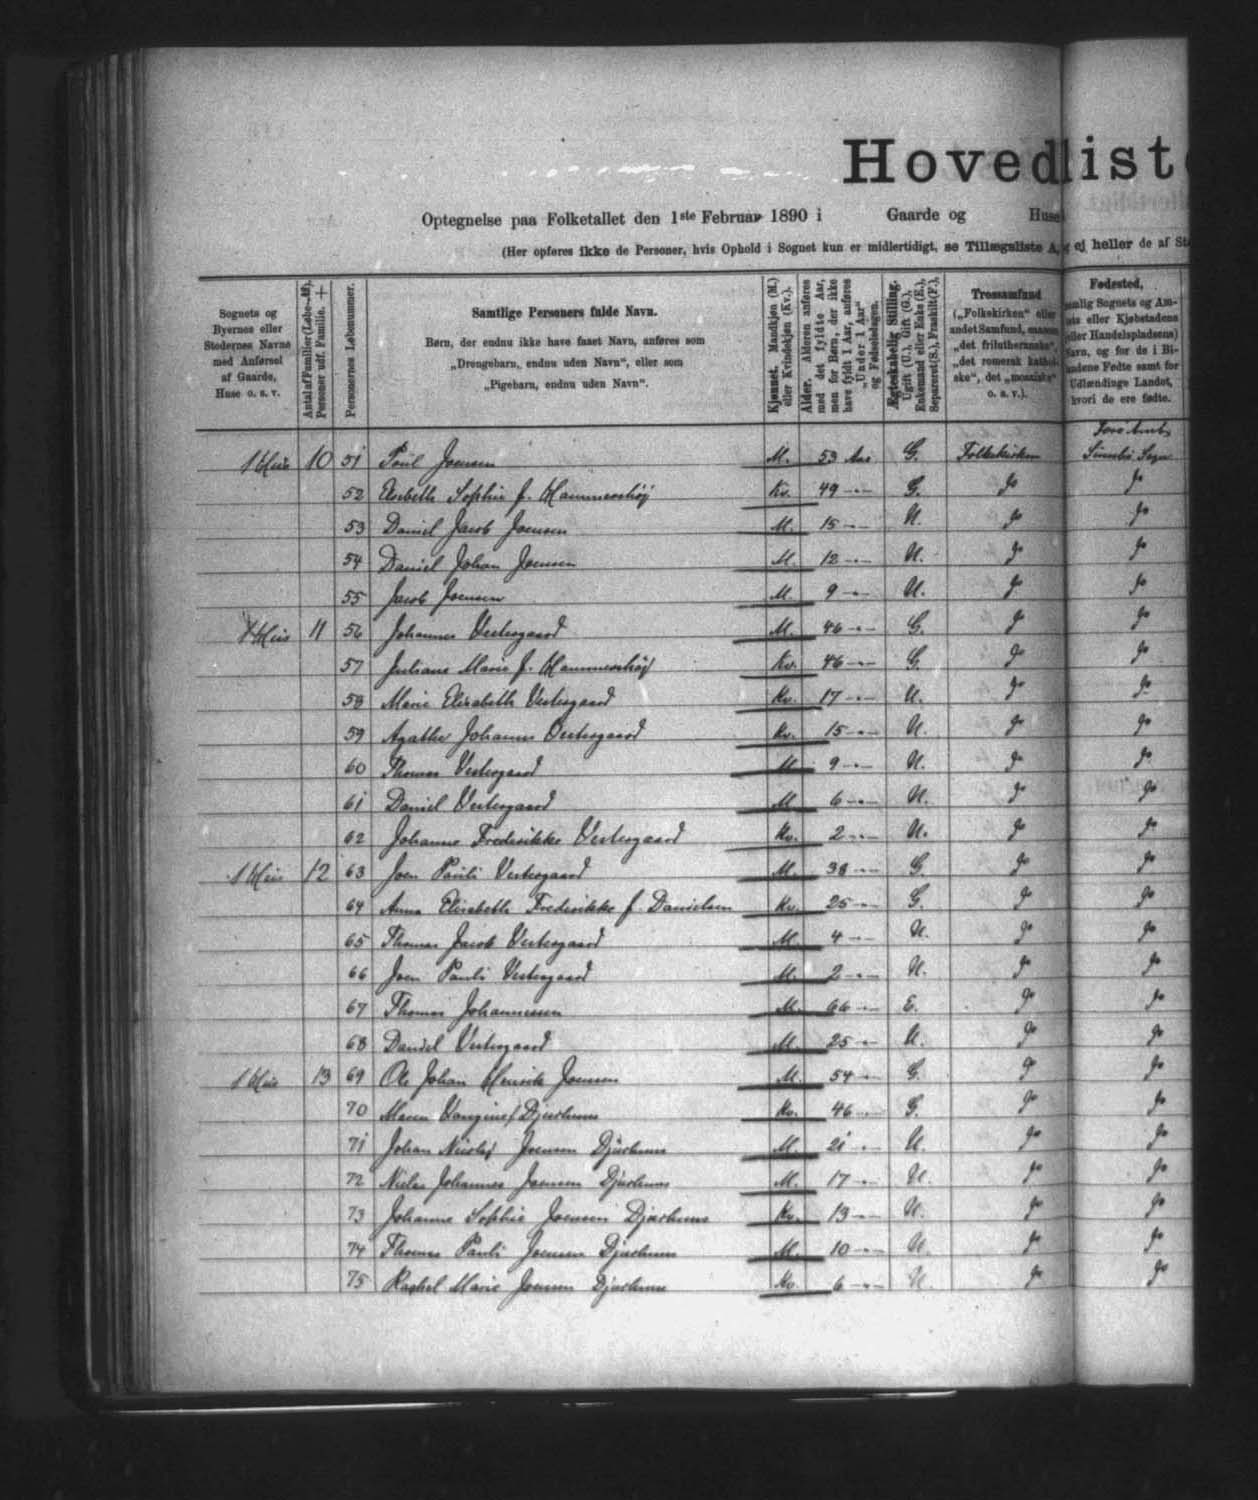 Hovedliste
Optegnelse paa Folketallet den 1ste Februar 1890 i Gaarde og Huse
(Her opføres ikke de Personer, hvis Ophold i Sognet kun er midlertidigt, se Tillægsliste A, ej heller de af
Sognets og
Byernes eller
Stedernes Navne
med Anførsel
af Gaarde,
Huse o. s. v.
Antal af Familier (Løbe-№).
Personer udf. Familie. +
Personernes Løbenummer.
Samtlige Personers fulde Navn.
Børn, der endnu ikke have faaet Navn, anføres som
„Drengebarn, endnu uden Navn“, eller som
„Pigebarn, endnu uden Navn“.
Kjønnet. Mandkjøn (M.)
eller Kvindekjøn (Kv.).
Alder. Alderen anføres
med det fyldte Aar,
men for Børn, der ikke
have fyldt 1 Aar, anføres
„Under 1 Aar“
og Fødselsdagen.
Ægteskabelig Stilling.
Ugift (U.), Gift (G.),
Enkemand eller Enke (E.),
Separeret (S.), Fraskilt (F.).
Trossamfund
(„Folkekirken“ eller
andet Samfund, saasom
„det frilutheranske“,
„det romersk kathol-
ske“, det „mosaiske“
o. s. v.).
Fødested,
Sognets og Am-
eller Kjøbstadens
eller Handelspladsens)
Navn, og for de i Bi-
landene Fødte samt for
Udlændinge Landet,
hvori de ere fødte.
Færø Amt,
1 Huus 10 51 Poul Joensen M. 53 Aar G. Folkekirken Sogn
52 Elsebeth Sophie f. Hammershøj Kv. 49 -"- G. do do
53 Daniel Jacob Joensen M. 15 -"- U. do do
54 Daniel Johan Joensen M. 12 -"- U. do do
55 Jacob Joensen M. 9 -"- U. do do
1 Huus 11 56 Johannes Vestergaard M. 46 -"- G. do do
57 Juliane Marie f. Hammershøj Kv. 46 -"- G. do do
58 Marie Elisabeth Vestergaard Kv. 17 -"- U. do do
59 Agathe Johanne Vestergaard Kv. 15 -"- U. do do
60 Thomas Vestergaard M. 9 -"- U. do do
61 Daniel Vestergaard M. 6 -"- U. do do
62 Johanne Frederikke Vestergaard Kv. 2 -"- U. do do
1 Huus 12 63 Joen Pauli Vestergaard M. 38 -"- G. do do
64 Anna Elisabeth Frederikke f. Danielsen Kv. 25 -"- G. do do
65 Thomas Jacob Vestergaard M. 4 -"- U. do do
66 Joen Pauli Vestergaard M. 2 -"- U. do do
67 Thomas Johannesen M. 66 -"- E. do do
68 Daniel Vestergaard M. 25 -"- U. do do
1 Huus 13 69 Ole Johan Henrik Joensen M. 54 -"- G. do do
70 Maren Djurhuus Kv. 46 -"- G. do do
71 Johan Nicolaj Joensen Djurhuus M. 21 -"- U. do do
72 Niclas Johannes Joensen Djurhuus M. 17 -"- U. do do
73 Johanne Sophie Joensen Djurhuus Kv. 13 -"- U. do do
74 Thomas Pauli Joensen Djurhuus M. 10 -"- U. do do
75 Rachel Marie Joensen Djurhuus Kv. 6 -"- U. do do